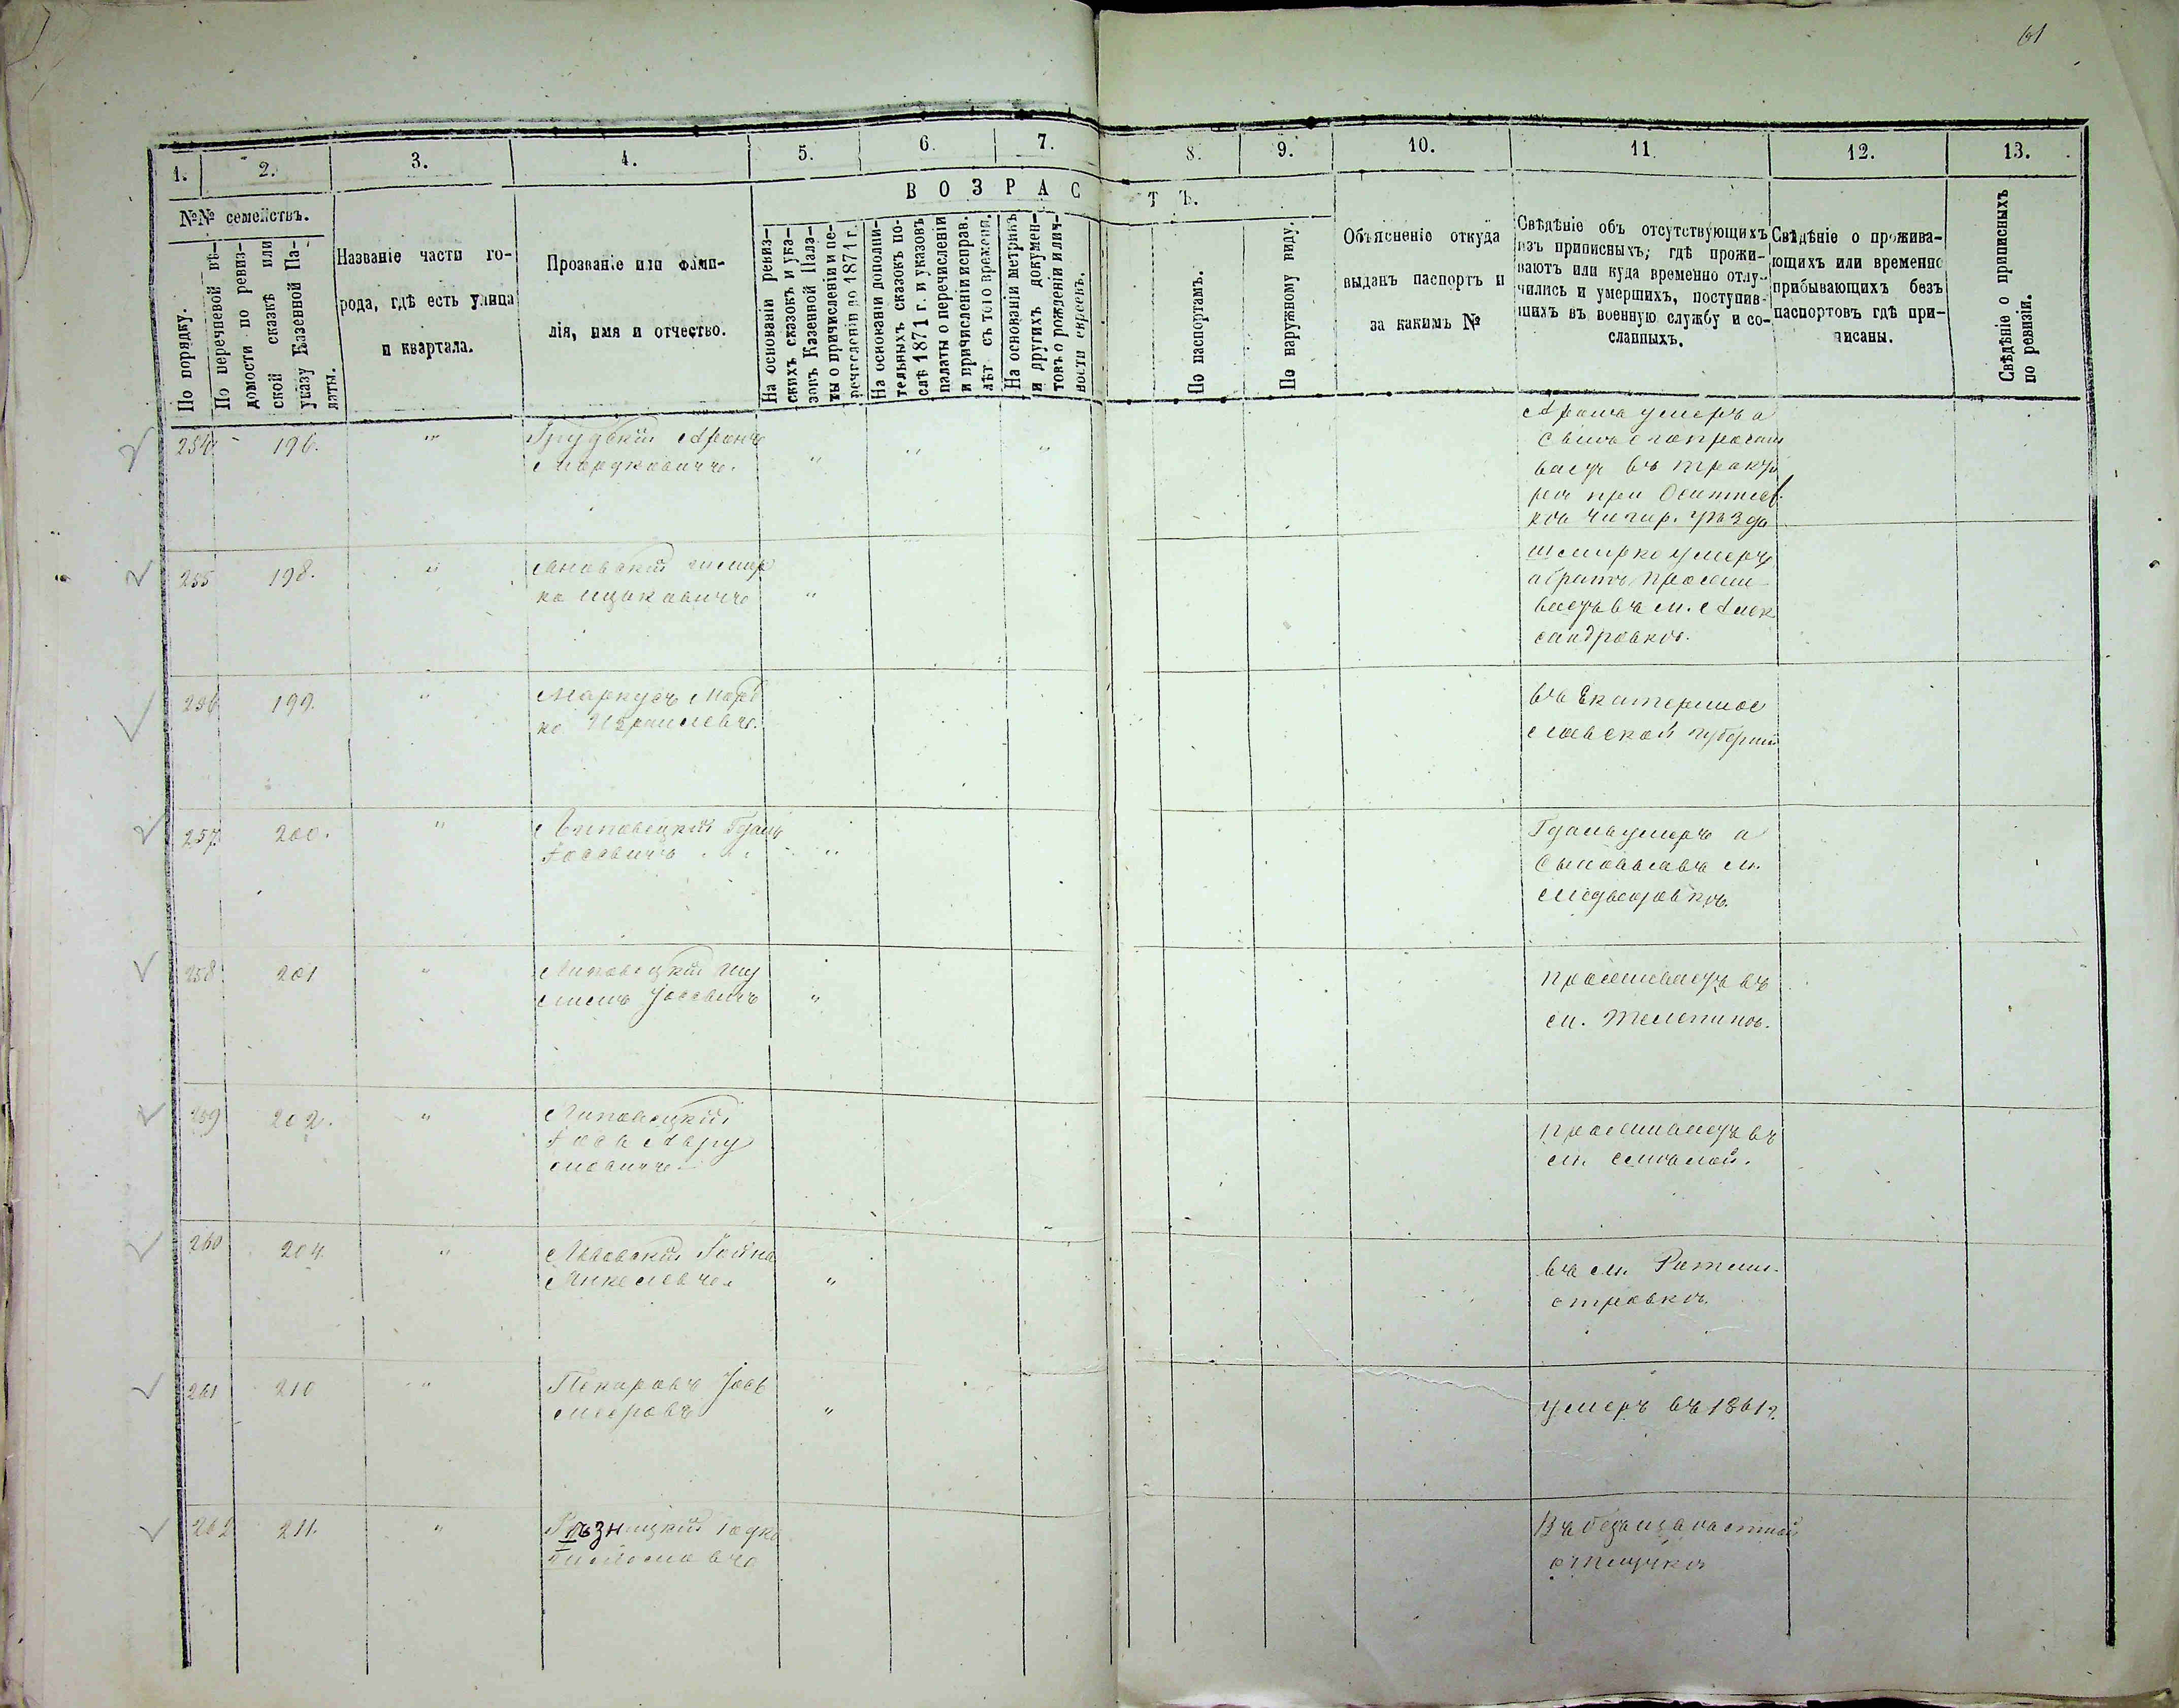 61
1. 2. 3. 4. 5. 6. 7. 8. 9. 10. 11. 12. 13.
В О З Р А С Т Ъ.
№№ семействъ.
По порядку.
По перечневой вѣ-
домости по ревиз-
ской сказкѣ или
указу Казенной Па-
латы.
Названіе части го-
рода, гдѣ есть улица
и квартала.
Прозваніе или фами-
лія, имя и отчество.
На основаніи ревиз-
скихъ сказокъ и ука-
зовъ Казенной Пала-
ты о причисленіи и пе-
речисленіи до 1871 г.
На основаніи дополни-
тельныхъ сказокъ по-
слѣ 1871 г. и указовъ
палаты о перечисленіи
и причисленіи исправ.
лѣт съ того времени.
На основаніи метрикъ
и другихъ докумен-
товъ о рожденіи и лич-
ности евреевъ.
По паспортамъ.
По наружному виду.
Объясненіе откуда
выданъ паспортъ и
за какимъ №
Свѣдѣніе объ отсутствующихъ
изъ приписныхъ; гдѣ прожи-
ваютъ или куда временно отлу-
чились и умершихъ, поступив-
шихъ въ военную службу и со-
сланныхъ.
Свѣдѣніе о прожива-
ющихъ или временно
прибывающихъ безъ
паспортовъ гдѣ при-
писаны.
Свѣдѣніе о приписныхъ
по ревизіи.
254 196. " Аронъ
Мордковичъ. " " "
умеръ а
сынъ
въ
при
Чигир. уѣзда
255 198. "
ко Ицковичъ "
Шмирко умеръ
а братъ прожи-
ваетъ въ м. Алек
сандровкѣ.
256 199. " Маркусъ Морд
ко Израилевъ.
въ Екатеринос
лавской губерніи
257. 200. " Липовецкій
Іосевичъ "
умеръ а
сыновья въ м.
Медведовкѣ.
258. 201 " Липовецкій Шу
Іосевичъ "
проживаетъ въ
м. Телепинѣ.
259 202. " Липовецкій
Іось Авру
мовичъ
проживаетъ въ
м. Смѣлой.
260 204. "
Янкелевъ. "
въ м. Ротми-
стровкѣ.
261 210 " Пекаровъ Іось
Мееровъ "
умеръ въ 1861 г.
262 211. " Рѣзницкій
Въ безызвѣстной
отлучкѣ